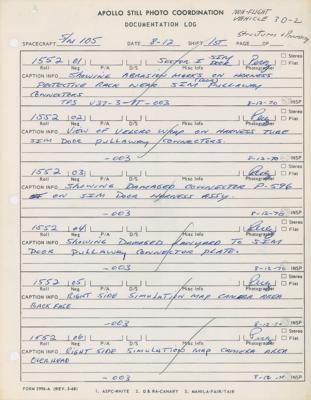 APOLLO STILL PHOTO COORDINATION
NON-FLIGHT
VEHICLE 30-2
DOCUMENTATION LOG
Structures &
SPACECRAFT S/N 105 DATE 8-12 SHIFT 1st PAGE OF
1552 101 Sector I SIM DOOR
Roll Neg P/G D/S Misc Info Photographer
Stereo
Flat
CAPTION INFO SHOWING ABRASION MARKS ON HARNESS
PROTECTIVE RACK NEAR SIM DOOR PULLAWAY
CONNECTORS
TPS 8-12-70 INSP
1552 102
Roll Neg P/G D/S Misc Info Photographer
Stereo
Flat
CAPTION INFO VIEW OF VELCRO WRAP ON HARNESS TUBE
SIM DOOR PULLAWAY CONNECTORS.
-003 8-12-70 INSP
1552 103
Roll Neg P/G D/S Misc Info Photographer
Stereo
Flat
CAPTION INFO SHOWING DAMAGED CONNECTOR P-596
ON SIM DOOR HARNESS ASSY.
-003 8-12-70 INSP
1552 104
Roll Neg P/G D/S Misc Info Photographer
Stereo
Flat
CAPTION INFO SHOWING DAMAGED LANYARD TO SIM
DOOR PULLAWAY CONNECTOR PLATE.
-003 8-12-70 INSP
1552 105
Roll Neg P/G D/S Misc Info Photographer
Stereo
Flat
CAPTION INFO RIGHT SIDE SIMULATION MAP CAMERA AREA
BACK FACE
-003 8-12-70 INSP
1552 106
Roll Neg P/G D/S Misc Info Photographer
Stereo
Flat
CAPTION INFO RIGHT SIDE SIMULATION MAP CAMERA AREA
OVERHEAD
-003 8-12-70 INSP
FORM 2996-A (REV. 5-68) 1. ASPC-WHITE 2. Q & RA-CANARY 3. MANILA-FAIR/TAIR